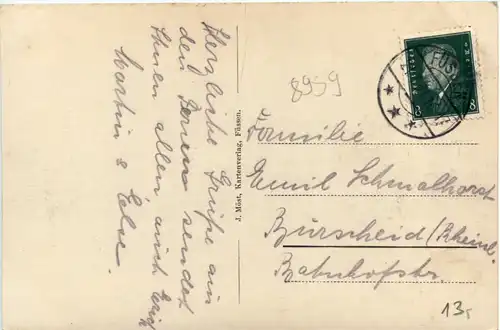 Herzliche Grüße aus
den Bergen sendet
Ihnen allen auch Erich
Martin &
J. Möst, Kartenverlag, Füssen.
8959
Familie
Emil Schmalhorst
Burscheid/Rheinl.
Bahnhofstr.
FÜS
8
8
13,